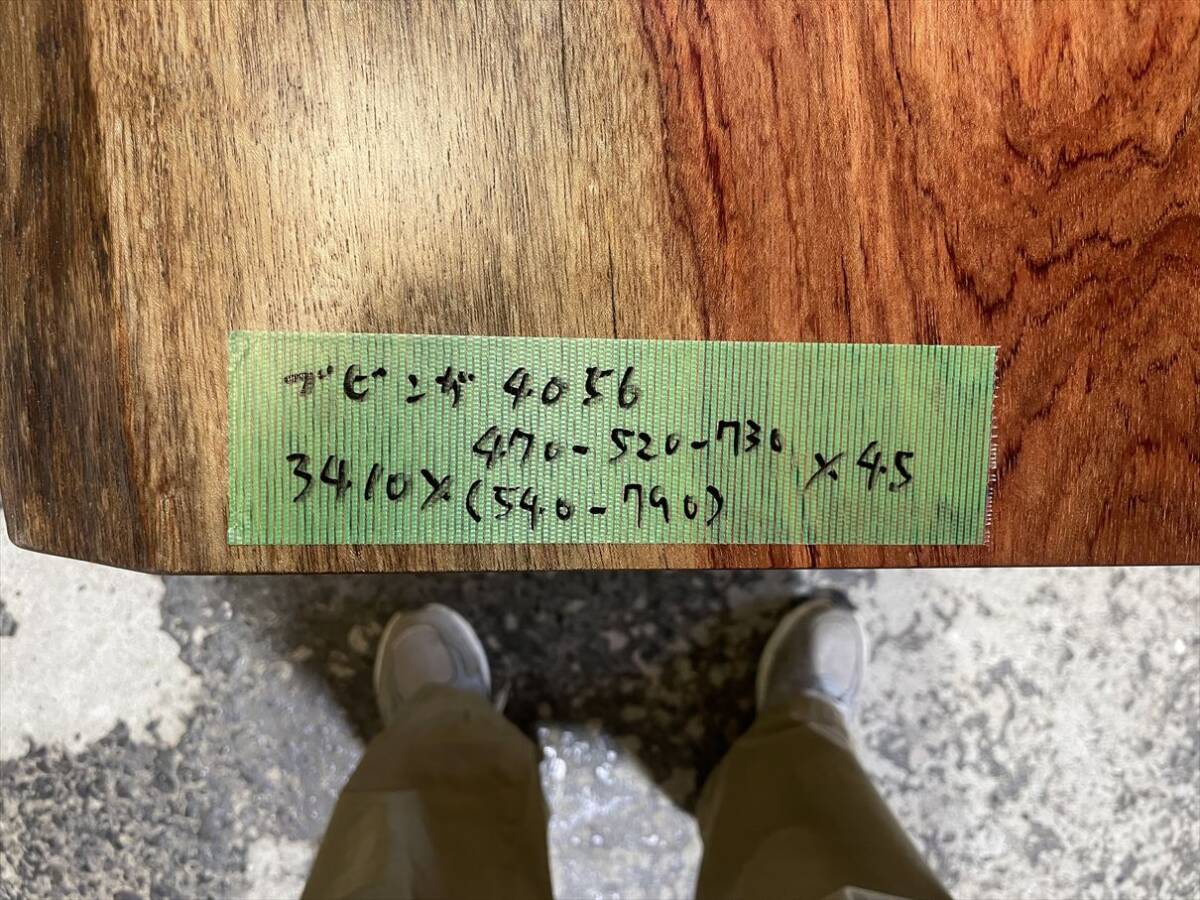 ブビンガ 4056
470-520-730
3410× ×45
(540-790)